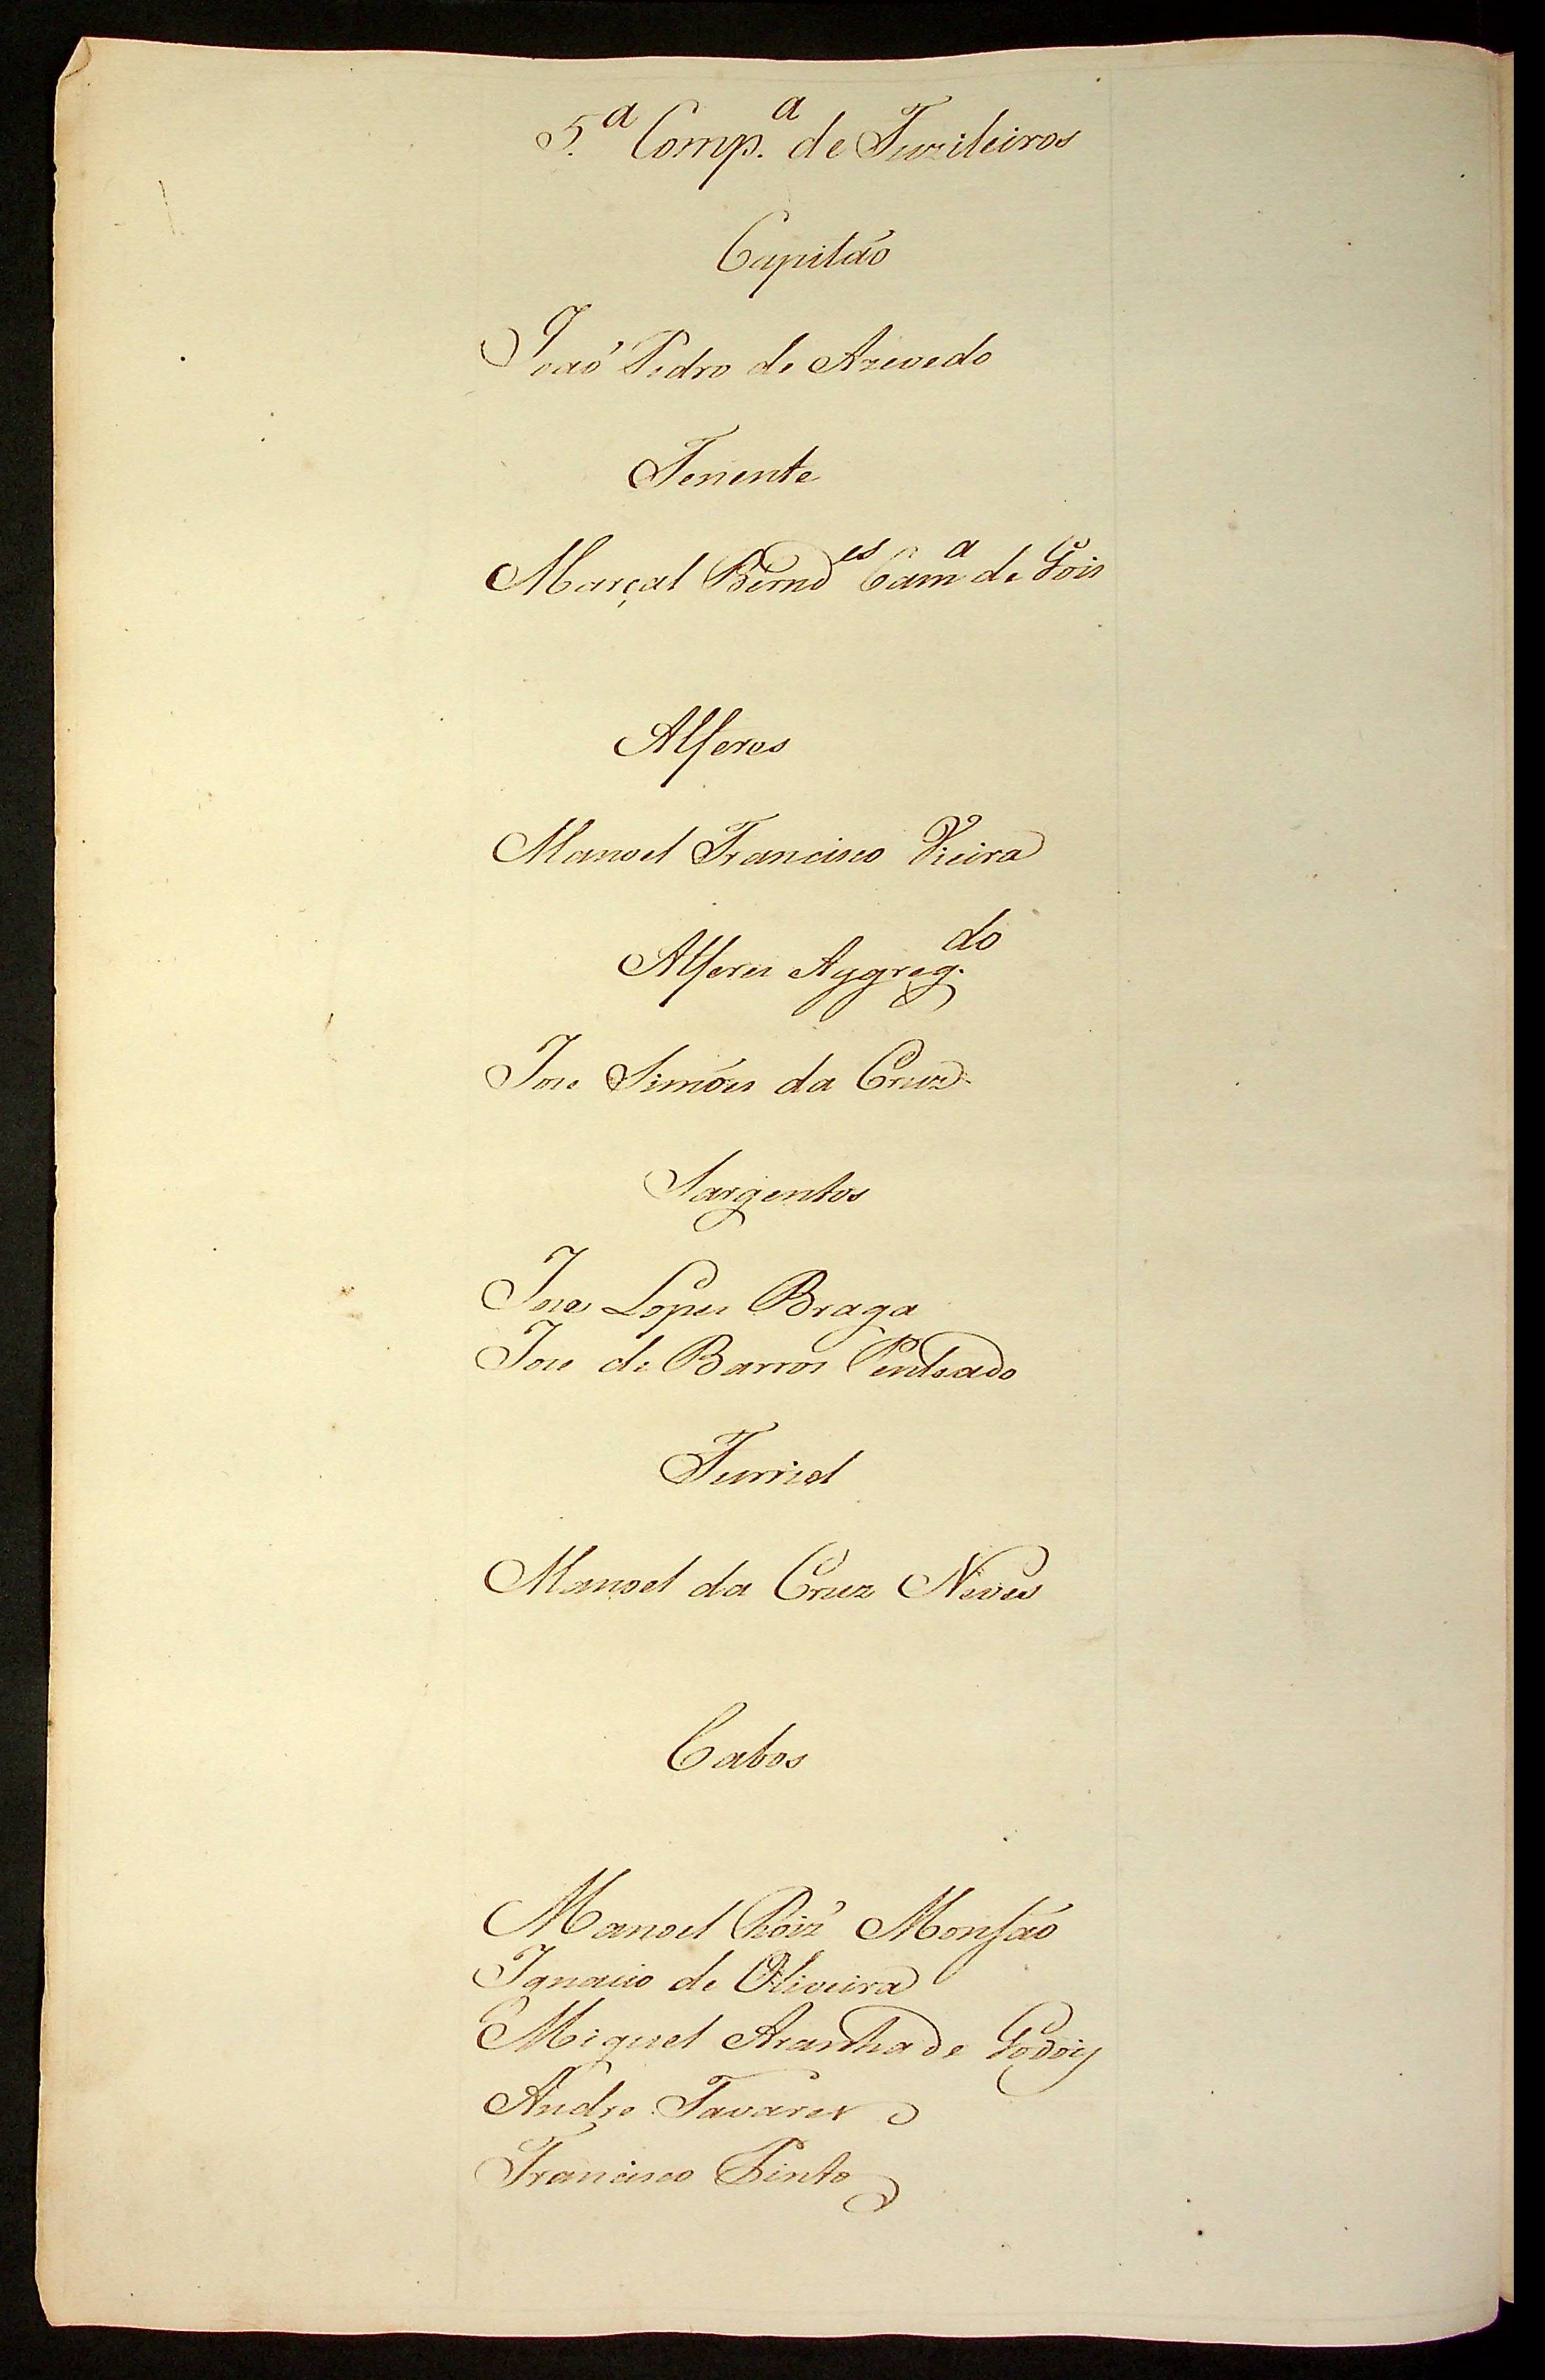 5.ª Comp.ª de Fuzileiros
Capitão
João Pedro de Azevedo
Tenente
Marçal Bernd.es Cam.a de Gois
Alferes
Manoel Francisco Vieira
Alferes Aggreg.do
Jose Simões da Cruz
Sargentos
Jose Lopes Braga
Jose de Barros Penteado
Furriel
Manoel da Cruz Neves
Cabos
Manoel Roiz' Monsão
Ignacio de Oliveira
Miguel Aranha de Godoiy
Andre Tavares
Francisco Pinto